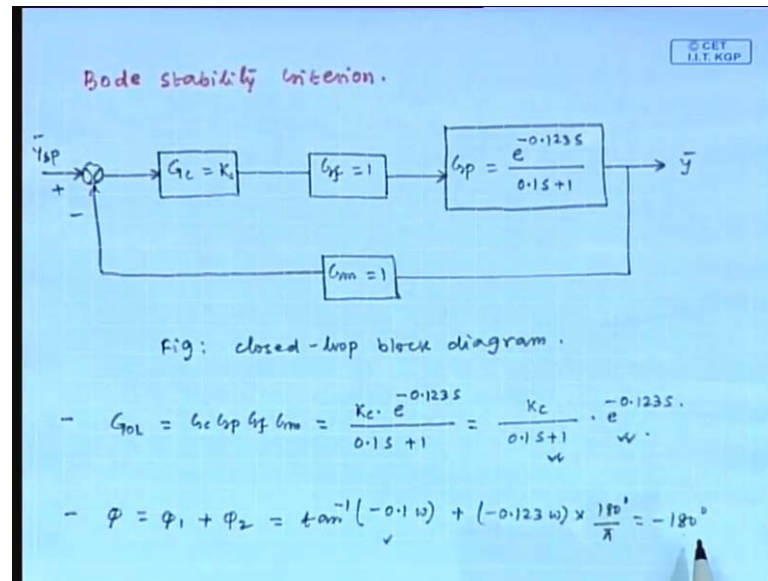 © CET
I.I.T. KGP
Bode stability criterion.
ȳsp
+
-
Gc = Kc
Gf = 1
Gp = e^-0.123s / 0.1s+1
ȳ
Gm = 1
Fig: closed-loop block diagram.
- GOL = Gc Gp Gf Gm = Kc. e^-0.123s / 0.1s+1 = Kc / 0.1s+1 . e^-0.123s.
- φ = φ1 + φ2 = tan^-1(-0.1ω) + (-0.123ω) × 180° / π = -180°